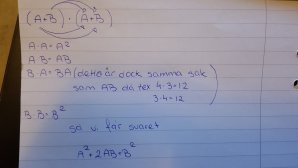 (A+B) · (A+B)
A·A = A²
A·B = AB
B·A = BA (detta är dock samma sak
som AB då tex 4·3=12
3·4=12
B·B = B²
så vi får svaret
A²+2AB+B²